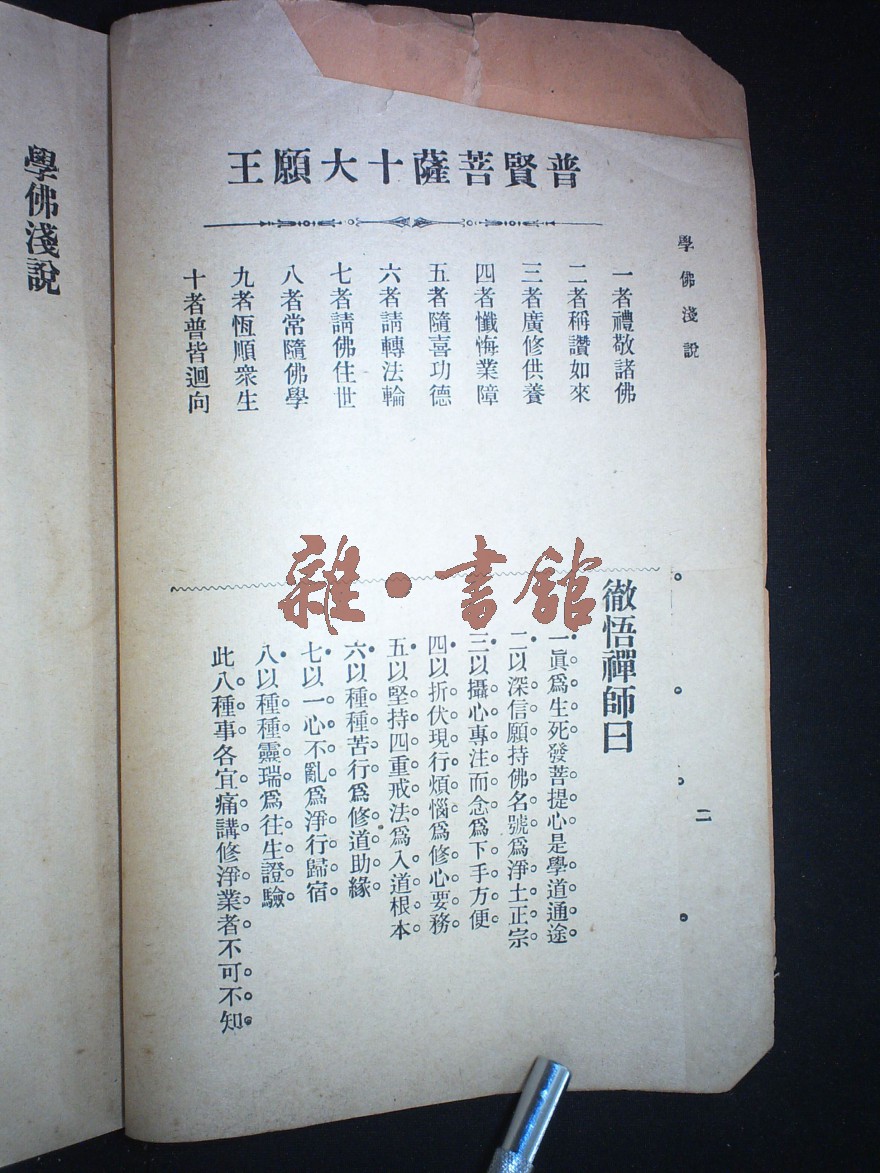 學佛淺說
二
普賢菩薩十大願王
一者禮敬諸佛
二者稱讚如來
三者廣修供養
四者懺悔業障
五者隨喜功德
六者請轉法輪
七者請佛住世
八者常隨佛學
九者恆順衆生
十者普皆迴向
徹悟禪師曰
一眞爲生死發菩提心是學道通途
二以深信願持佛名號爲淨土正宗
三以攝心專注而念爲下手方便
四以折伏現行煩惱爲修心要務
五以堅持四重戒法爲入道根本
六以種種苦行爲修道助緣
七以一心不亂爲淨行歸宿
八以種種靈瑞爲往生證驗
此八種事各宜痛講修淨業者不可不知
學佛淺說
雜·書館